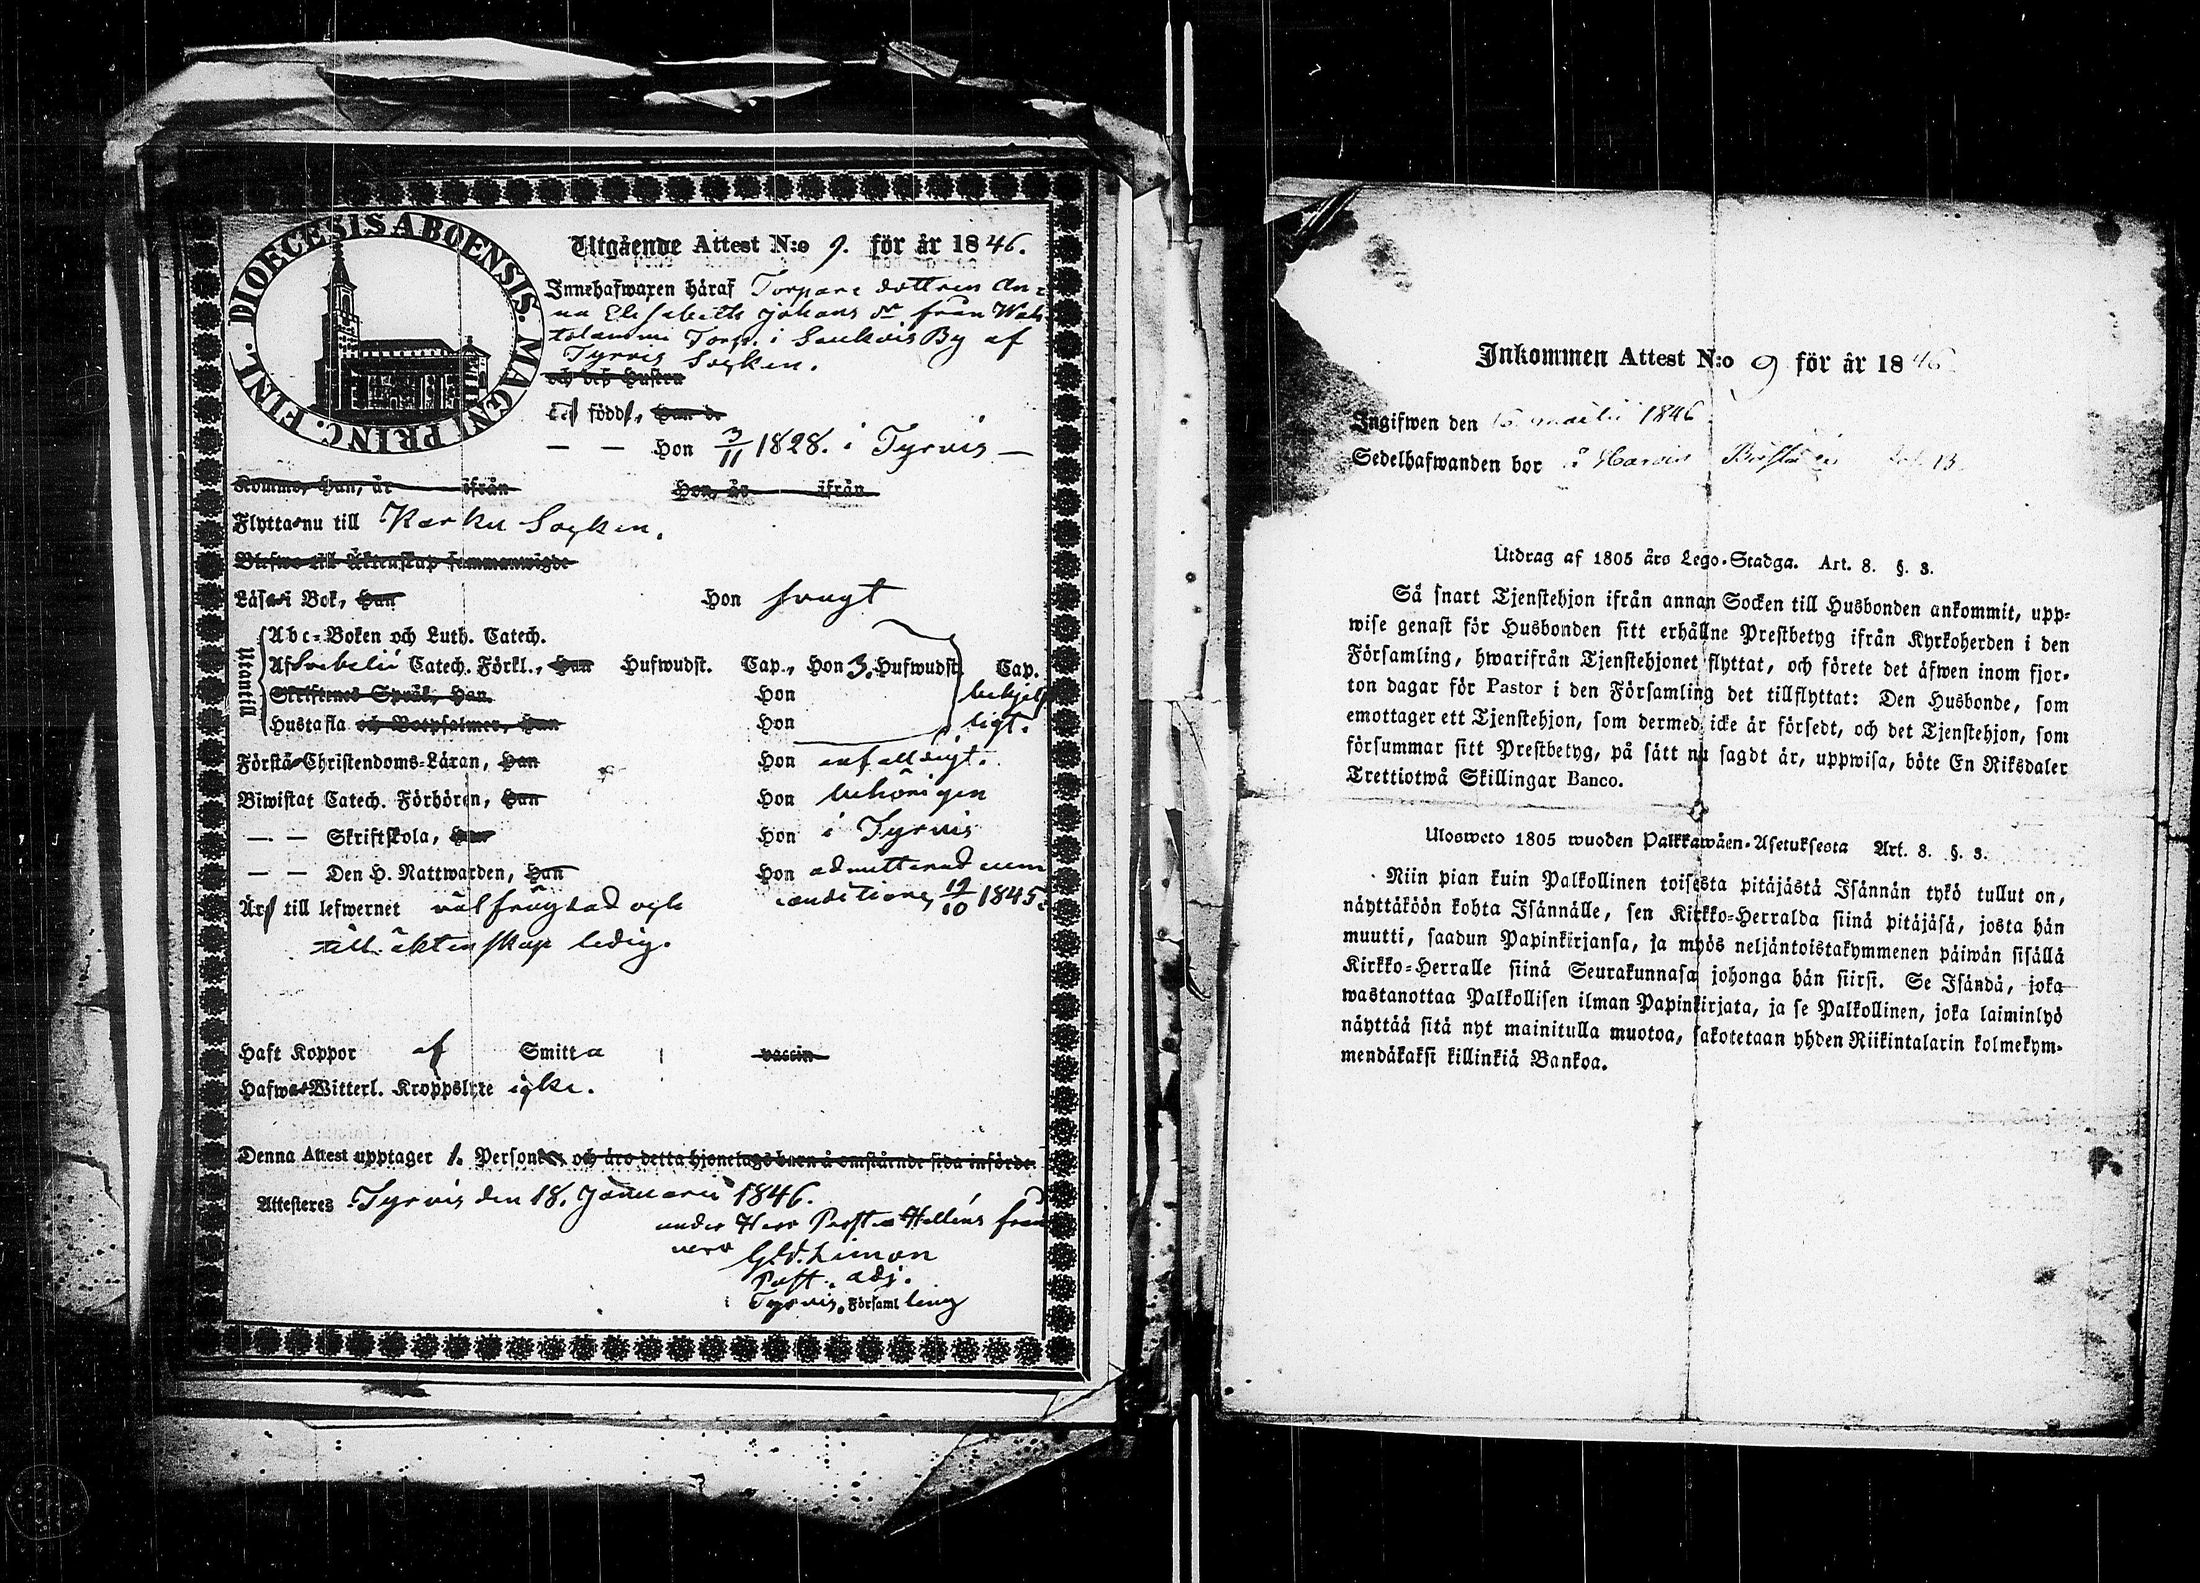 DIOECESIS ABOENSIS. MAGNI PRINC. FINL.
Utgående Attest N:o 9. för år 1846.
Innehafwaren häraf Torpare dottren An-
na Elisabeth Johans dr från
Torp. i By af
Tyrvis Socken.
och dess Hustru
född, Han d.
— — Hon 3/11 1828. i Tyrvis —
Kommo, Han, år ifrån Hon, år ifrån
Flytta nu till Karku Socken.
Blefwo till Äktenskap sammanwigde
Läsa i Bok, Han Hon svagt
Utantill
Abc-Boken och Luth. Catech.
Af Svebelii Catech. Förkl., Han Hufwudst. Cap., Hon 3. Hufwudst. Cap.
Skriftenes Språk, Han Hon behjelp
Hustafla och Botpsalmer, Han Hon ligt.
Förstå Christendoms-Läran, Han Hon enfaldigt.
Biwistat Catech. Förhören, Han Hon behörigen
— — Skriftskola, Han Hon i Tyrvis
— — Den H. Nattwarden, Han Hon admitterad cum
Är till lefwernet välfrägdad och conditione, 19/10 1845.
till äktenskap ledig.
Haft Koppor af Smitta vaccin
Hafwa Witterl. Kroppslyte icke.
Denna Attest upptager 1. Person och äro detta hjonelags barn å omstående sida införde.
Attesteres Tyrvis den 18. Januarii 1846.
under Herr Hellens från
varo
Limon
Past. adj.
i Tyrvis Församling
Inkommen Attest N:o 9 för år 1846
Ingifwen den 1846
Sedelhafwanden bor å
Utdrag af 1805 års Lego-Stadga. Art. 8. §. 3.
Så snart Tjenstehjon ifrån annan Socken till Husbonden ankommit, upp-
wise genast för Husbonden sitt erhållne Prestbetyg ifrån Kyrkoherden i den
Församling, hwarifrån Tjenstehjonet flyttat, och förete det äfwen inom fjor-
ton dagar för Pastor i den Församling det tillflyttat: Den Husbonde, som
emottager ett Tjenstehjon, som dermed icke är försedt, och det Tjenstehjon, som
försummar sitt Prestbetyg, på sätt nu sagdt är, uppwisa, böte En Riksdaler
Trettiotwå Skillingar Banco.
Ulosweto 1805 wuoden Palkkawäen-Asetuksesta Art. 8. §. 3.
Niin pian kuin Palkollinen toisesta pitäjästä Isännän tykö tullut on,
näyttäköön kohta Isännälle, sen Kirkko-Herralda siinä pitäjäsä, josta hän
muutti, saadun Papinkirjansa, ja myös neljäntoistakymmenen päiwän sisällä
Kirkko-Herralle siinä Seurakunnasa johonga hän siirsi. Se Isändä, joka
wastanottaa Palkollisen ilman Papinkirjata, ja se Palkollinen, joka laiminlyö
näyttää sitä nyt mainitulla muotoa, sakotetaan yhden Riikintalarin kolmekym-
mendäkaksi killinkiä Bankoa.